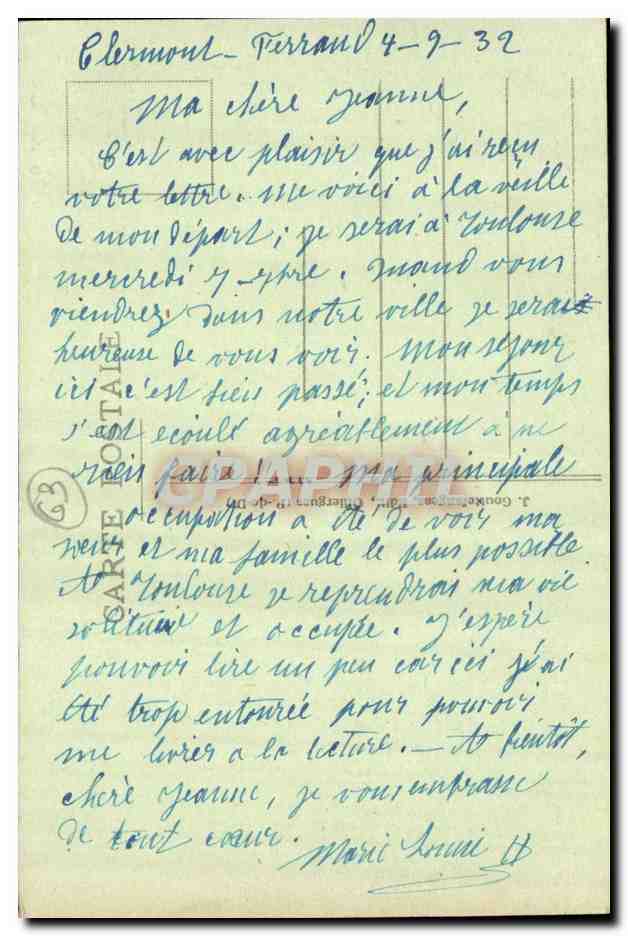 Clermont-Ferrand 4-9-32
Ma chère Jeanne,
C'est avec plaisir que j'ai reçu
votre lettre. Me voici à la veille
de mon départ; je serai à Toulouse
mercredi 7 7bre. Quand vous
viendrez dans notre ville je serai
heureuse de vous voir. Mon séjour
ici c'est bien passé; et mon temps
s'est écoulé agréablement à ne
rien faire !... Ma principale
occupation a été de voir ma
soeur et ma famille le plus possible
A Toulouse je reprendrai ma vie
solitaire et occupée. J'espère
pouvoir lire un peu car ici j'ai
été trop entourée pour pouvoir
me livrer à la lecture. — A bientôt,
chère Jeanne, je vous embrasse
de tout coeur.
Marie Louise
63
CARTE POSTALE
CPAPHIL